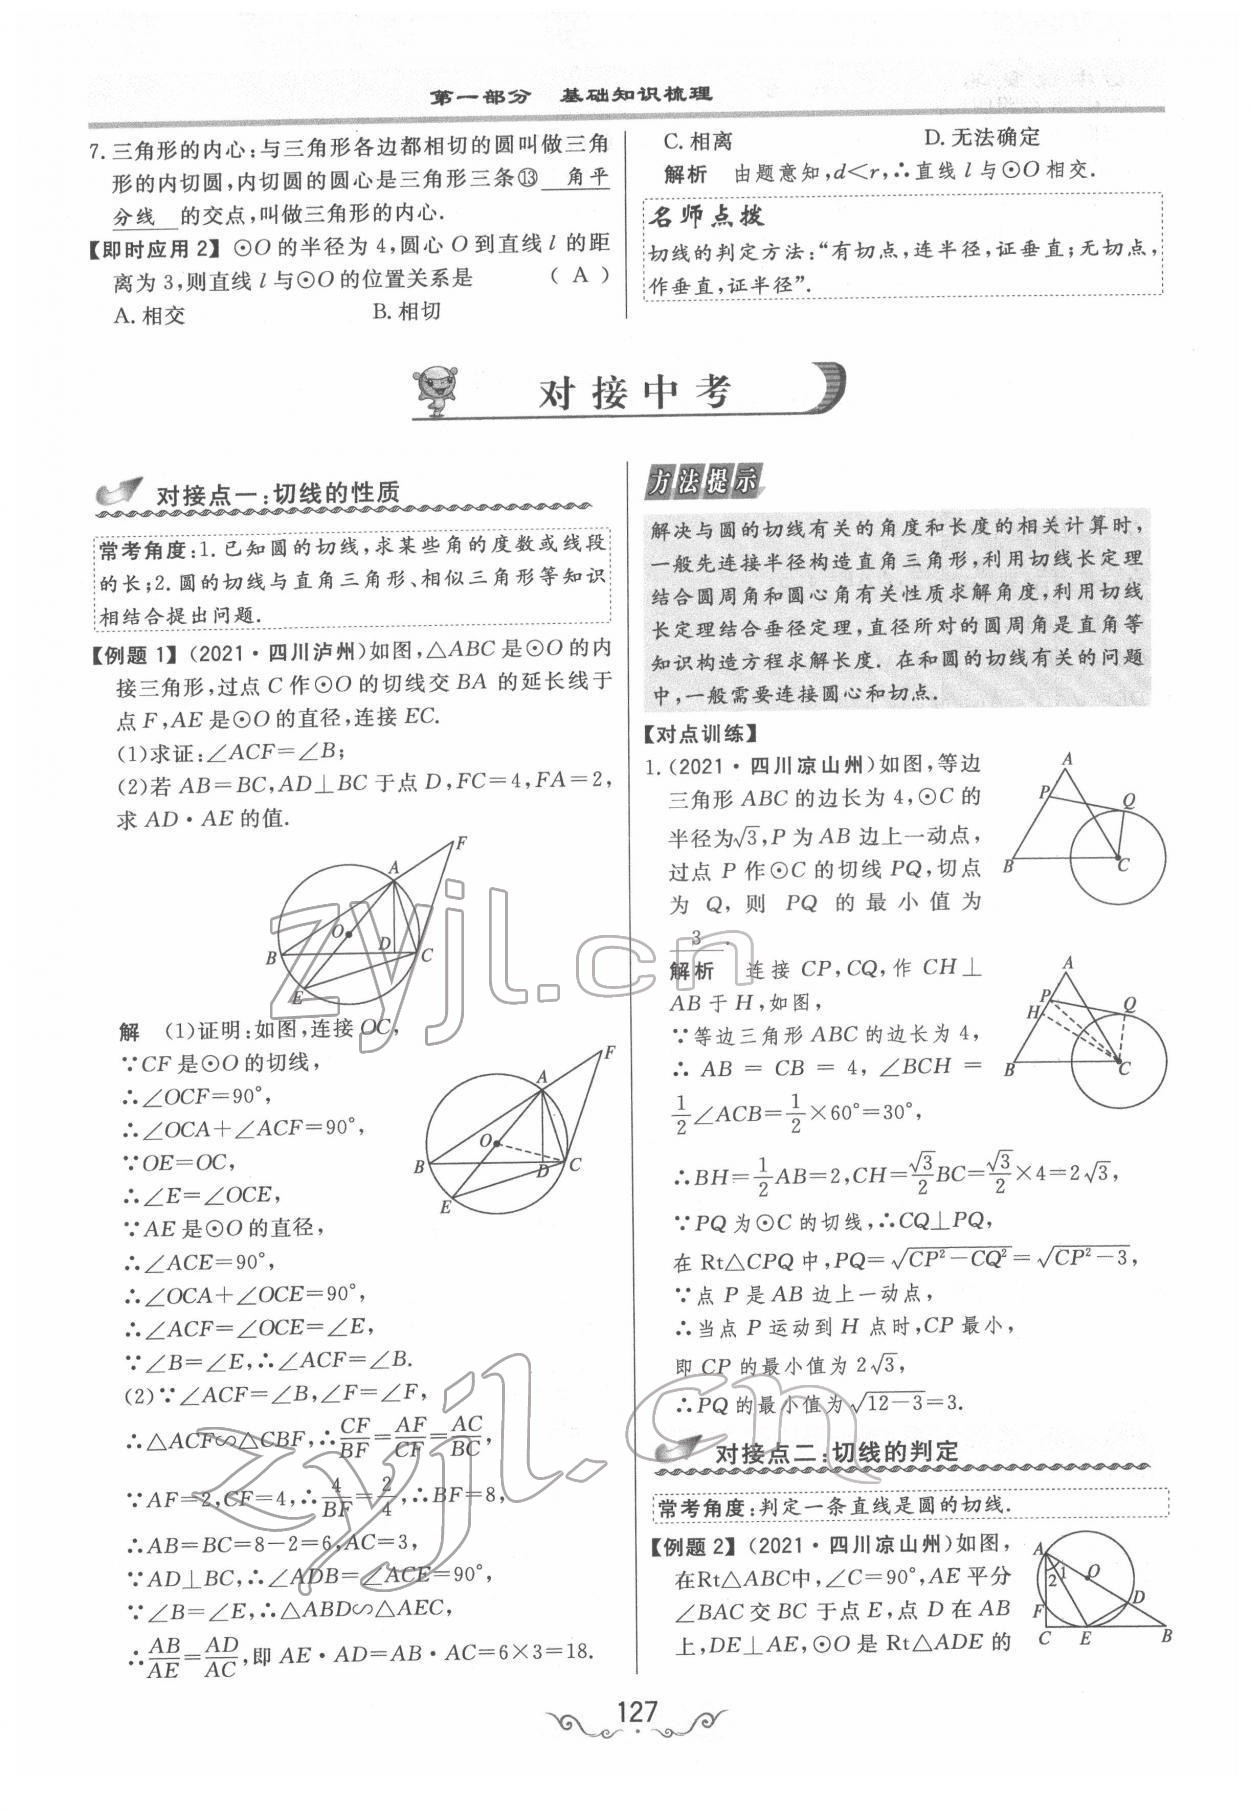 第一部分 基础知识梳理
7.三角形的内心:与三角形各边都相切的圆叫做三角
形的内切圆,内切圆的圆心是三角形三条⑬ 角平
分线 的交点,叫做三角形的内心.
【即时应用2】 ⊙O的半径为4,圆心O到直线l的距
离为3,则直线l与⊙O的位置关系是 ( A )
A.相交 B.相切
C.相离 D.无法确定
解析 由题意知,d<r,∴直线l与⊙O相交.
名师点拨
切线的判定方法:“有切点,连半径,证垂直;无切点,
作垂直,证半径”.
对接中考
对接点一:切线的性质
常考角度:1.已知圆的切线,求某些角的度数或线段
的长;2.圆的切线与直角三角形、相似三角形等知识
相结合提出问题.
【例题1】(2021·四川泸州)如图,△ABC是⊙O的内
接三角形,过点C作⊙O的切线交BA的延长线于
点F,AE是⊙O的直径,连接EC.
(1)求证:∠ACF=∠B;
(2)若AB=BC,AD⊥BC于点D,FC=4,FA=2,
求AD·AE的值.
F
A
O
B D C
E
解 (1)证明:如图,连接OC,
∵CF是⊙O的切线,
∴∠OCF=90°,
∴∠OCA+∠ACF=90°,
∵OE=OC,
∴∠E=∠OCE,
∵AE是⊙O的直径,
∴∠ACE=90°,
∴∠OCA+∠OCE=90°,
∴∠ACF=∠OCE=∠E,
∵∠B=∠E,∴∠ACF=∠B.
F
A
O
B D C
E
(2)∵∠ACF=∠B,∠F=∠F,
∴△ACF∽△CBF,∴CF/BF=AF/CF=AC/BC,
∵AF=2,CF=4,∴4/BF=2/4,∴BF=8,
∴AB=BC=8-2=6,AC=3,
∵AD⊥BC,∴∠ADB=∠ACE=90°,
∵∠B=∠E,∴△ABD∽△AEC,
∴AB/AE=AD/AC,即AE·AD=AB·AC=6×3=18.
方法提示
解决与圆的切线有关的角度和长度的相关计算时,
一般先连接半径构造直角三角形,利用切线长定理
结合圆周角和圆心角有关性质求解角度,利用切线
长定理结合垂径定理,直径所对的圆周角是直角等
知识构造方程求解长度.在和圆的切线有关的问题
中,一般需要连接圆心和切点.
【对点训练】
1.(2021·四川凉山州)如图,等边
三角形ABC的边长为4,⊙C的
半径为√3,P为AB边上一动点,
过点P作⊙C的切线PQ,切点
为Q,则PQ的最小值为
3 .
A
P Q
B C
解析 连接CP,CQ,作CH⊥
AB于H,如图,
∵等边三角形ABC的边长为4,
∴AB=CB=4,∠BCH=
1/2∠ACB=1/2×60°=30°,
A
P Q
H
B C
∴BH=1/2AB=2,CH=√3/2BC=√3/2×4=2√3,
∵PQ为⊙C的切线,∴CQ⊥PQ,
在Rt△CPQ中,PQ=√(CP²-CQ²)=√(CP²-3),
∵点P是AB边上一动点,
∴当点P运动到H点时,CP最小,
即CP的最小值为2√3,
∴PQ的最小值为√(12-3)=3.
对接点二:切线的判定
常考角度:判定一条直线是圆的切线.
【例题2】(2021·四川凉山州)如图,
在Rt△ABC中,∠C=90°,AE平分
∠BAC交BC于点E,点D在AB
上,DE⊥AE,⊙O是Rt△ADE的
A
1
2
O
D
F
C E B
127
zyjl.cn
zyjl.cn